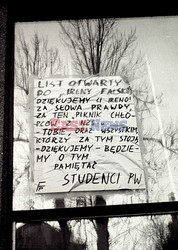 LIST OTWARTY
DO IRENY FALSKI
DZIĘKUJEMY CI IRENO!
ZA SŁOWA PRAWDY,
ZA TEN „PIKNIK CHŁO-
PCÓW Z NZS"
- TOBIE ORAZ WSZYSTKIM,
KTÓRZY ZA TYM STOJĄ
- DZIĘKUJEMY - BĘDZIE-
MY O TYM
PAMIĘTAĆ
STUDENCI PW